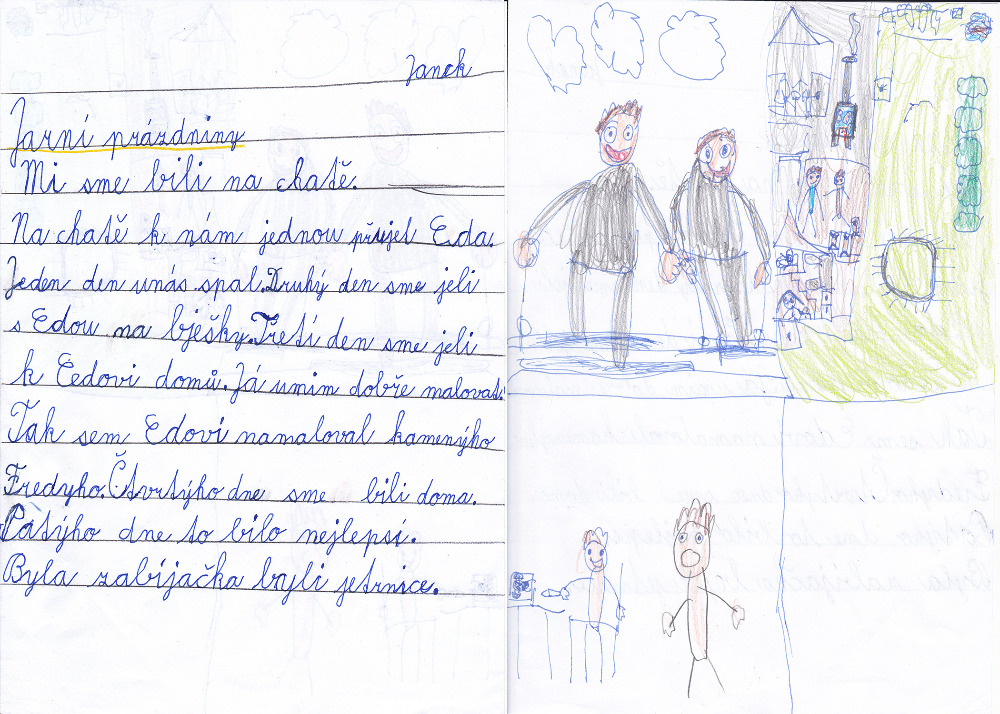 Janek
Jarní prázdniny
Mi sme bili na chatě.
Na chatě k nám jednou přijel Eda.
Jeden den unás spal. Druhý den sme jeli
s Edou na bješky. Třetí den sme jeli
k Eedovi domů. Já umim dobře malovat.
Tak sem Edovi namaloval kamenýho
Fredyho. Čtvrtýho dne sme bili doma.
Pátýho dne to bilo nejlepší.
Byla zabijačka byli jetrnice.